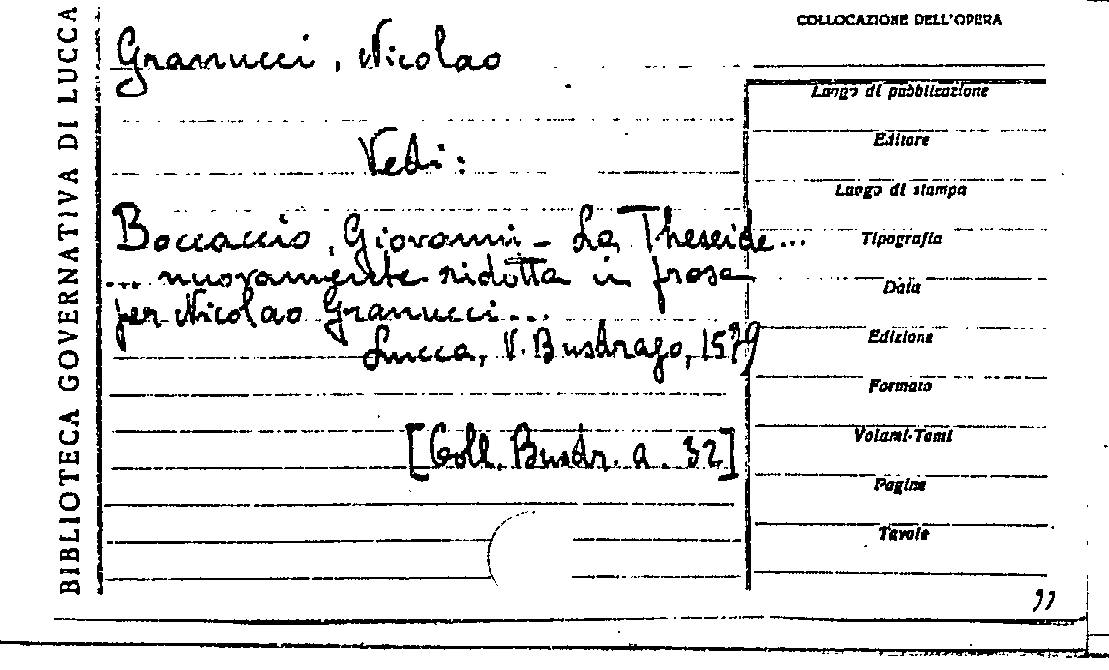 BIBLIOTECA GOVERNATIVA DI LUCCA
COLLOCAZIONE DELL'OPERA
Granucci, Nicolao
Vedi:
Boccaccio, Giovanni - La Theseide...
... nuovamente ridotta in prosa
per Nicolao Granucci...
Lucca, V. Busdrago, 1579
[Coll. Busdr. a. 32]
Luogo di pubblicazione
Editore
Luogo di stampa
Tipografia
Data
Edizione
Formato
Volumi-Tomi
Pagine
Tavole